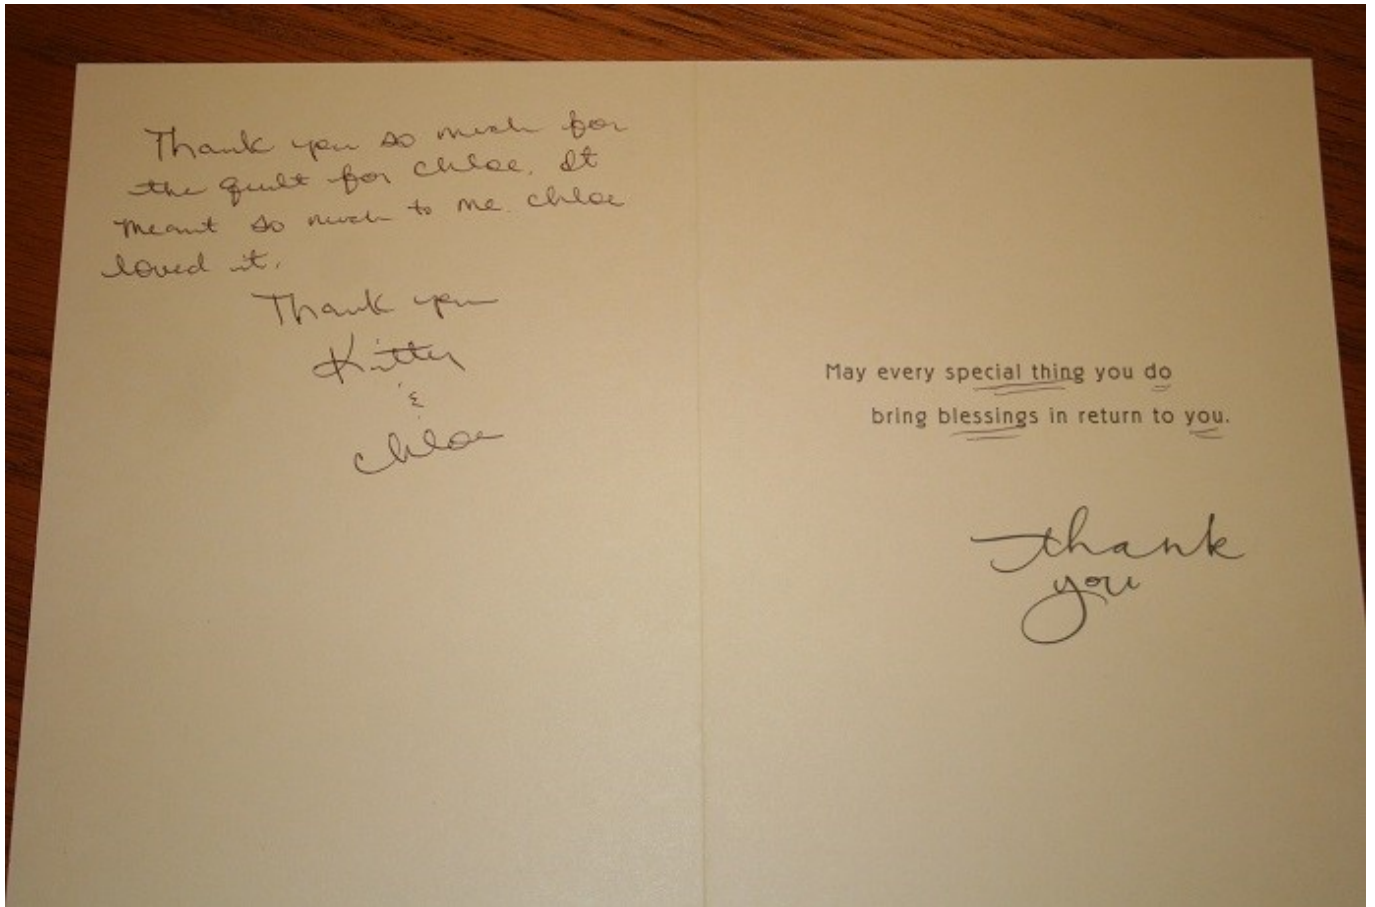 Thank you so much for
the quilt for Chloe. It
meant so much to me. Chloe
loved it.
Thank you
Kitty
&
Chloe
May every special thing you do
bring blessings in return to you.
thank
you